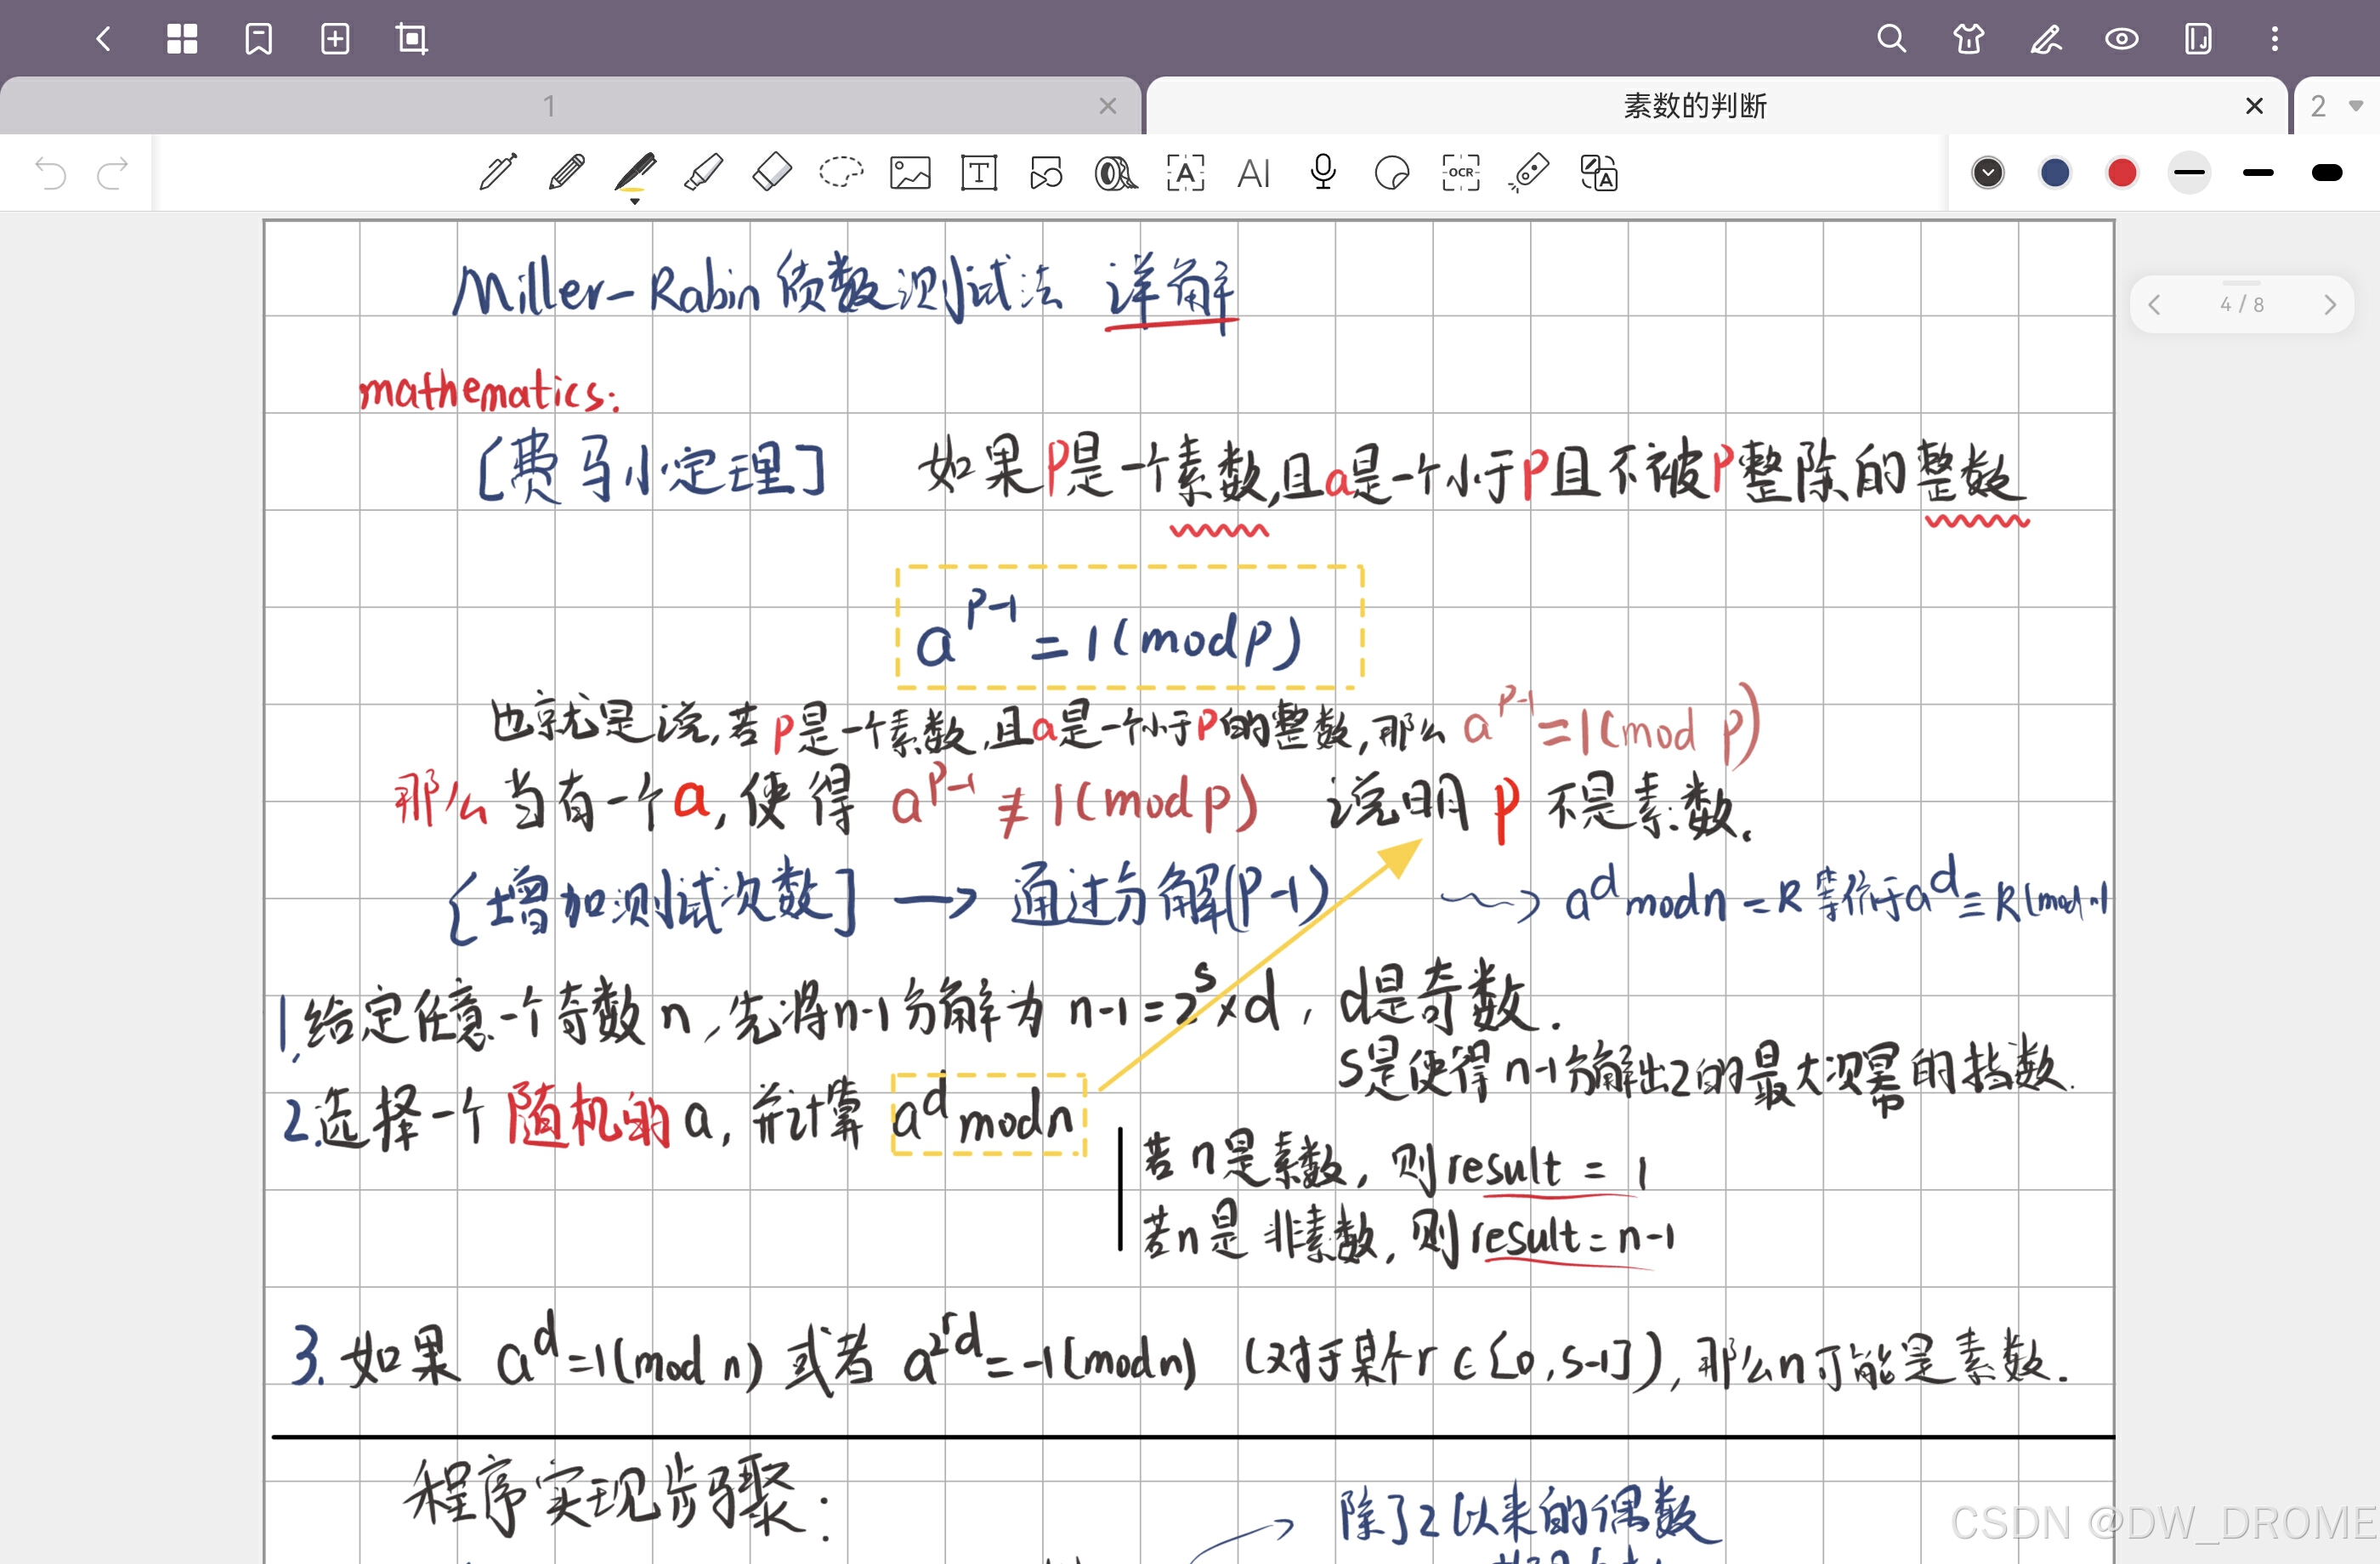 1
素数的判断
2
T
A
AI
OCR
A
4 / 8
Miller-Rabin 质数测试法 详解
mathematics:
[费马小定理] 如果P是一个素数,且a是一个小于P且不被P整除的整数
a^{P-1} = 1(mod P)
也就是说,若P是一个素数,且a是一个小于P的整数,那么 a^{P-1}=1(mod P)
那么当有一个a,使得 a^{P-1} ≢ 1(mod p) 说明 P 不是素数.
[增加测试次数] → 通过分解(P-1) ⇝ a^d mod n = R 等价于 a^d ≡ R(mod n)
1.给定任意一个奇数n,先将n-1分解为 n-1=2^s×d, d是奇数.
S是使得n-1分解出2的最大次幂的指数.
2.选择一个随机的a,并计算 a^d mod n
若n是素数,则result = 1
若n是非素数,则result = n-1
3.如果 a^d=1(mod n)或者 a^{2^r d}=-1(mod n) (对于某个r∈[0,S-1]),那么n可能是素数.
程序实现步骤:
除了2以来的偶数
CSDN @DW_DROME